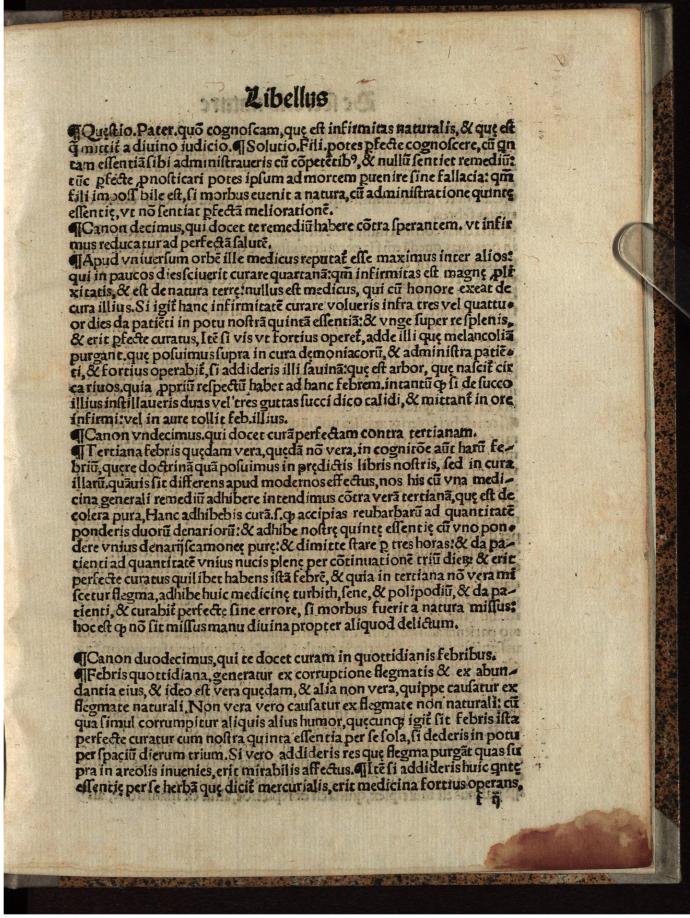 Libellus
¶Quęstio. Pater. quō cognoscam, quę est infirmitas naturalis, & quę est
q̄ mittit̄ a divino iudicio. ¶Solutio. Fili. potes ꝑfecte cognoscere, cū qn
tam essentiā sibi administraveris cū cōpetētibꝰ, & nullū sentiet remediū:
tūc ꝑfecte ꝓnosticari potes ipsum ad mortem ꝑuenire sine fallacia: qm̄
fili imposs bile est, si morbus euenit a natura, cū administratione quintę
essentię, vt nō sentiat ꝑfectā meliorationē.
¶Canon decimus, qui docet te remediū habere cōtra sperantem. vt infir
mus reducatur ad perfectā salutē.
¶Apud vniuersum orbē ille medicus reputat̄ esse maximus inter alios:
qui in paucos dies sciuerit curare quartanā: qm̄ infirmitas est magnę ꝓli
xitatis, & est de natura terrę: nullus est medicus, qui cū honore exeat de
cura illius. Si igit̄ hanc infirmitatē curare volueris infra tres vel quattu
or dies da patiēti in potu nostrā quintā essentiā: & vnge super re splenis,
& erit ꝑfecte curatus, Itē si vis vt fortius operet̄, adde illi quę melancoliā
purgant. quę posuimus supra in cura dęmoniacorū, & administra patiē
ti, & fortius operabit̄, si addideris illi sauinā: quę est arbor, quę nascit̄ cir
ca riuos. quia ꝓpriū respectū habet ad hanc febrem. intantū ꝙ si de succo
illius instillaueris duas vel tres guttas succi dico calidi, & mittant̄ in ore
infirmi: vel in aure tollit feb. illius.
¶Canon vndecimus. qui docet curā perfectam contra tertianam.
¶Tertiana febris quędam vera, quędā nō vera, in cognitōe aūt harū fe-
briū, quęre doctrinā quā posuimus in prędictis libris nostris, sed in cura
illarū. quāuis sit differens apud modernos effectus, nos his cū vna medi-
cina generali remediū adhibere intendimus cōtra verā tertianā, quę est de
colera pura, Hanc adhibebis curā. s. ꝙ accipias reubarbarū ad quantitatē
ponderis duorū denariorū: & adhibe nostrę quintę essentię cū vno pon
dere vnius denarij scamoneę purę: & dimitte stare ꝑ tres horas: & da pa-
tienti ad quantitatē vnius nucis plenę per cōtinuationē triū dieꝝ & erit
perfecte curatus quilibet habens istā febrē, & quia in tertiana nō vera mi
scetur flegma, adhibe huic medicinę turbith, sene, & polipodiū, & da pa-
tienti, & curabit̄ perfectę sine errore, si morbus fuerit a natura missus:
hoc est ꝙ nō sit missus manu diuina propter aliquod delictum.
¶Canon duodecimus, qui te docet curam in quottidianis febribus.
¶Febris quottidiana, generatur ex corruptione flegmatis & ex abun-
dantia eius, & ideo est vera quędam, & alia non vera, quippe causatur ex
flegmate naturali, Non vera vero causatur ex flegmate non naturali: cū
qua simul corrumpitur aliquis alius humor, quęcunqꝫ igit̄ sit febris ista
perfecte curatur cum nostra quinta essentia per se sola, si dederis in potu
per spaciū dierum trium. Si vero addideris res quę flegma purgāt quas su
pra in areolis inuenies, erit mirabilis affectus. ¶Itē si addideris huic qntę
essentię per se herbā quę dicit̄ mercurialis, erit medicina fortius operans,
f ij